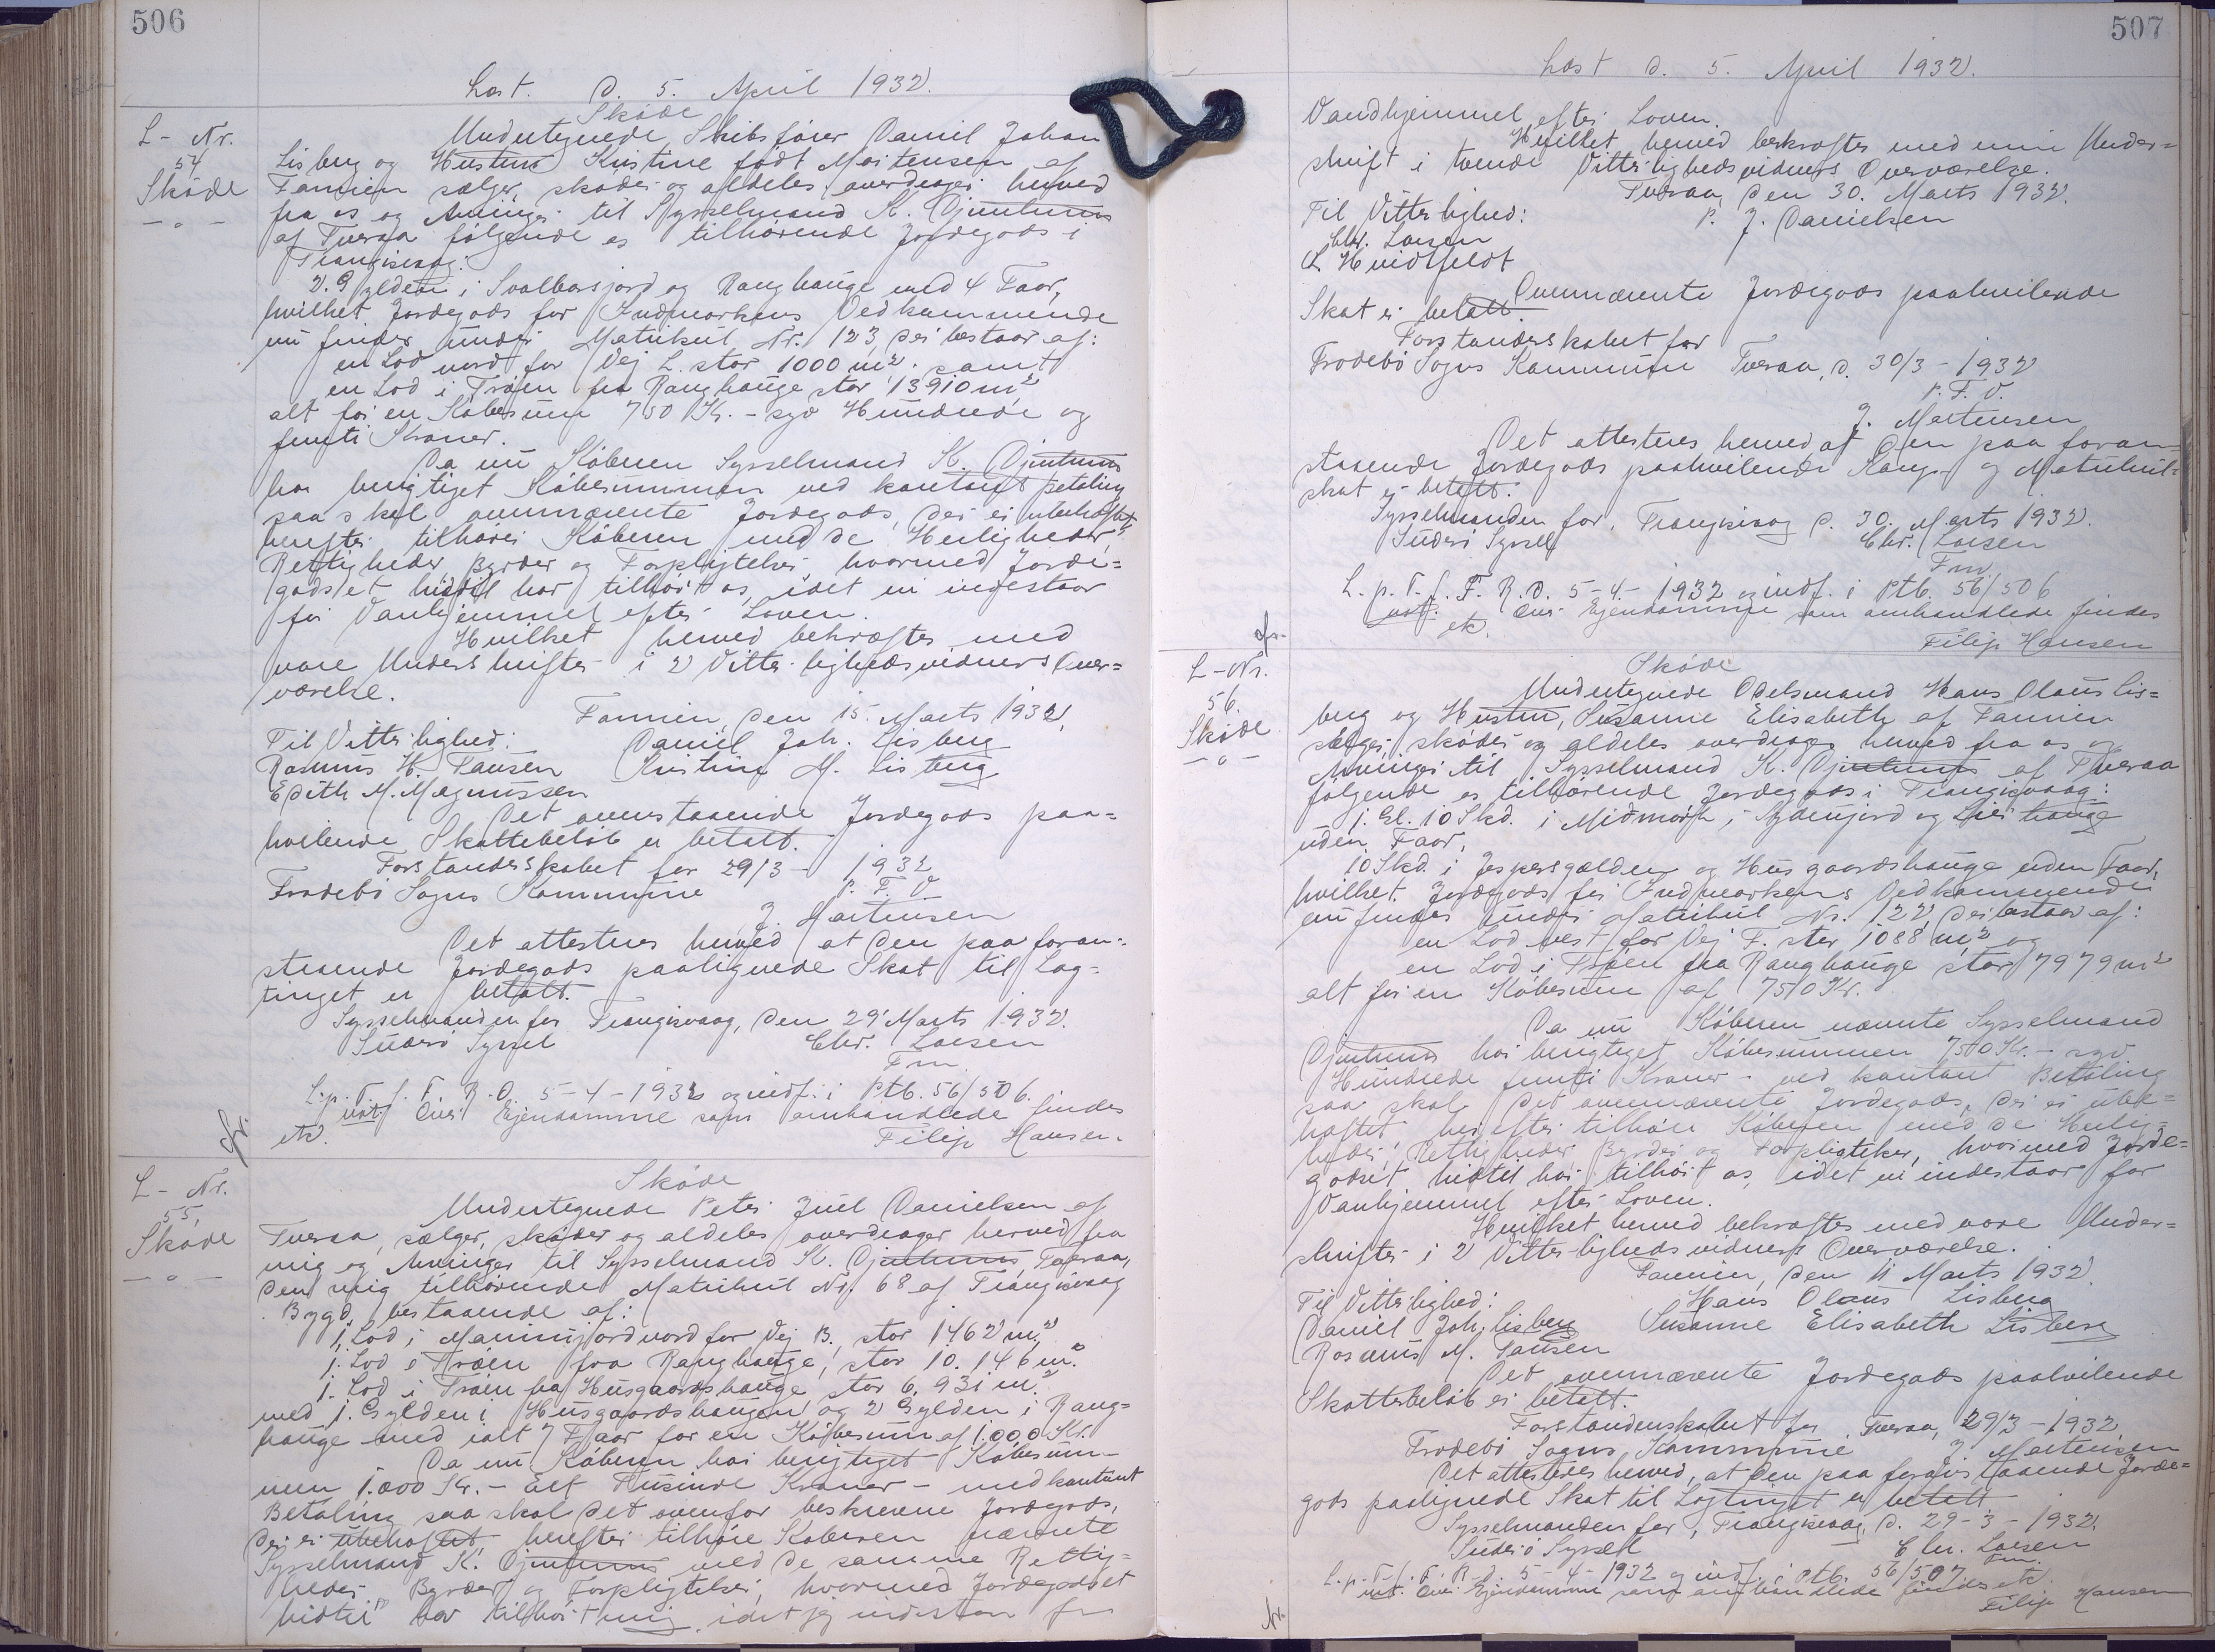 506
Læst. d. 5. April 1932.
L- Nr.
54
Skøde
— o —
Skøde
Undertegnede Skibsfører Daniel Johan
Lisberg og Hustru Kristine født Mortensen af
Famien sælger, skøder og aldeles overdrager herved
fra os og Arvinger til Sysselmand K. Djurhuus
af Tveraa følgende os tilhørende Jordegods i
Trangisvaag:
2 Gylden i Svalbarsjord og Ranghauge med 4 Faar,
hvilket Jordegods for Indmarkens Vedkommende
nu findes under Matrikul Nr. 123, der bestaar af:
en Lod nord for Vej L. stor 1000 m² samt
en Lod i Trøen fra Ranghauge stor 13910 m²
alt for en Købesum 750 Kr. - syv Hundrede og
femti Kroner.
Da nu Køberen Sysselmand K. Djurhuus
har berigtiget Købesummen ved kontant Betaling
saa skal ovennævnte Jordegods, der er ubehæftet,
herefter tilhøre Køberen med de Herligheder,
Rettigheder, Byrder og Forpligtelser hvormed Jorde=
godset hidtil har tilhørt os, idet vi indestaar
for Vanhjemmel efter Loven.
Hvilket herved bekræftes med
vore Underskrifter i 2 Vitterlighedsvidners Over=
værelse.
Famien, den 15. Marts 1932.
Til Vitterlighed: Daniel Joh. Lisberg
Rasmus H. Pausen Kristine M. Lisberg
Edith M. Magnussen
Det ovenstaaende Jordegods paa=
hvilende Skattebeløb er betalt.
Forstanderskabet for 29/3 - 1932
Frodebø Sogns Kommune P. F. V.
J. Mortensen
Det attesteres herved at den paa foran=
staaende Jordegods paalignede Skat til Lag=
tinget er betalt.
Sysselmanden for Trangisvaag, den 29' Marts 1932.
Suderø Syssel Chr. Larsen
Fm.
L. p. T. f. F. R. D. 5-4-1932 og indf. i Ptb. 56/506.
not. Over Ejendomme som omhandlede findes
etc. Filip Hansen.
L- Nr.
55.
Skøde
— o —
Skøde
Undertegnede Peter Juel Danielsen af
Tveraa, sælger, skøder og aldeles overdrager herved fra
mig og Arvinger til Sysselmand K. Djurhuus, Tveraa,
den mig tilhørende Matrikul Nr. 68 af Trangisvaag
Bygd, bestaaende af:
1. Lod i Manungjord nord for Vej B. stor 1462 m²,
1. Lod i Trøen fra Ranghauge, stor 10.146 m²
1. Lod i Trøen fra Husgaardshauge stor 6.931 m²
med 1. Gylden i Husgaardshaugen og 2 Gylden i Rang=
hauge med ialt 7 Faar for en Købesum af 1.000 Kr.
Da nu Køberen har berigtiget Købesum-
men 1.000 Kr. - Eet Tusinde Kroner - med kontant
Betaling saa skal det ovenfor beskrevne Jordegods,
der er ubehæftet, herefter tilhøre Køberen nævnte
Sysselmand K. Djurhuus med de samme Rettig=
heder Byrder og Forpligtelser, hvormed Jordegodset
hidtil har tilhørt mig, idet jeg indestaar for
507
Læst d. 5. April 1932.
Vandhjemmel efter Loven.
Hvilket herved bekræftes med min Under=
skrift i tvende Vitterlighedsvidners Overværelse.
Tveraa, den 30. Marts 1932.
Til Vitterlighed: P. J. Danielsen
Chr. Larsen
L Hvidtfeldt
Ovennævnte Jordegods paahvilende
Skat er betalt.
Forstanderskabet for
Frodebø Sogns Kommune Tveraa, d. 30/3 - 1932
P. F. V.
J. Mortensen
Det attesteres herved at den paa foran=
staaende Jordegods paahvilende Kongs- og Matrikul=
skat er betalt.
Sysselmanden for, Trangisvaag d. 30. Marts 1932.
Suderø Syssel Chr. Larsen
Fm.
L. p. T. f. F. R. D. 5-4-1932 og indf. i Ptb. 56/506
not. Over Ejendomme som omhandlede findes
etc. Filip Hansen
L-Nr.
56.
Skøde
— o —
Skøde
Undertegnede Odelsmand Hans Olaus Lis=
berg og Hustru, Susanne Elisabeth af Famien
sælger, skøder og aldeles overdrager herved fra os og
Arvinger til Sysselmand K. Djurhuus af Tveraa
følgende os tilhørende Jordegods i Trangisvaag:
1. Gl. 10 Skd. i Midmørk, og Lier hauge
uden Faar,
10 Skd. i Jespersgælden og Husgaardshauge uden Faar,
hvilket Jordegods for Indmarkens Vedkommende
nu findes under Matrikul Nr. 122, der bestaar af:
en Lod vest for Vej F. stor 1088 m² og
en Lod i Trøen fra Ranghauge stor 7979 m²
alt for en Købesum af 750 Kr.
Da nu Køberen nævnte Sysselmand
Djurhuus har berigtiget Købesummen 750 Kr. - syv
Hundrede femti Kroner - ved kontant Betaling
saa skal det ovennævnte Jordegods, der er ube=
hæftet, herefter tilhøre Køberen med de Herlig=
heder, Rettigheder Byrder og Forpligtelser, hvormed Jorde=
godset hidtil har tilhørt os, idet vi indestaar for
Vanhjemmel efter Loven.
Hvilket herved bekræftes med vore Under=
skrifter i 2 Vitterlighedsvidners Overværelse.
Famien, den 11 Marts 1932.
Til Vitterlighed: Hans Olaus Lisberg
Daniel Joh. Lisberg Susanne Elisabeth Lisberg
Rasmus M. Pausen
Det ovennævnte Jordegods paahvilende
Skattebeløb er betalt.
Forstanderskabet for, Tveraa, 29/3 - 1932.
Frodebø Sogns Kommune J. Mortensen
Det attesteres herved, at den paa foranstaaende Jorde=
gods paalignede Skat til Lagtinget er betalt
Sysselmanden for, Trangisvaag, d. 29-3-1932.
Suderø Syssel Chr. Larsen
Fm.
L. p. T. f. F. R. D. 5-4-1932 og indf. i Ptb. 56/507.
not. Over Ejendomme som omhandlede findes etc.
Filip Hansen